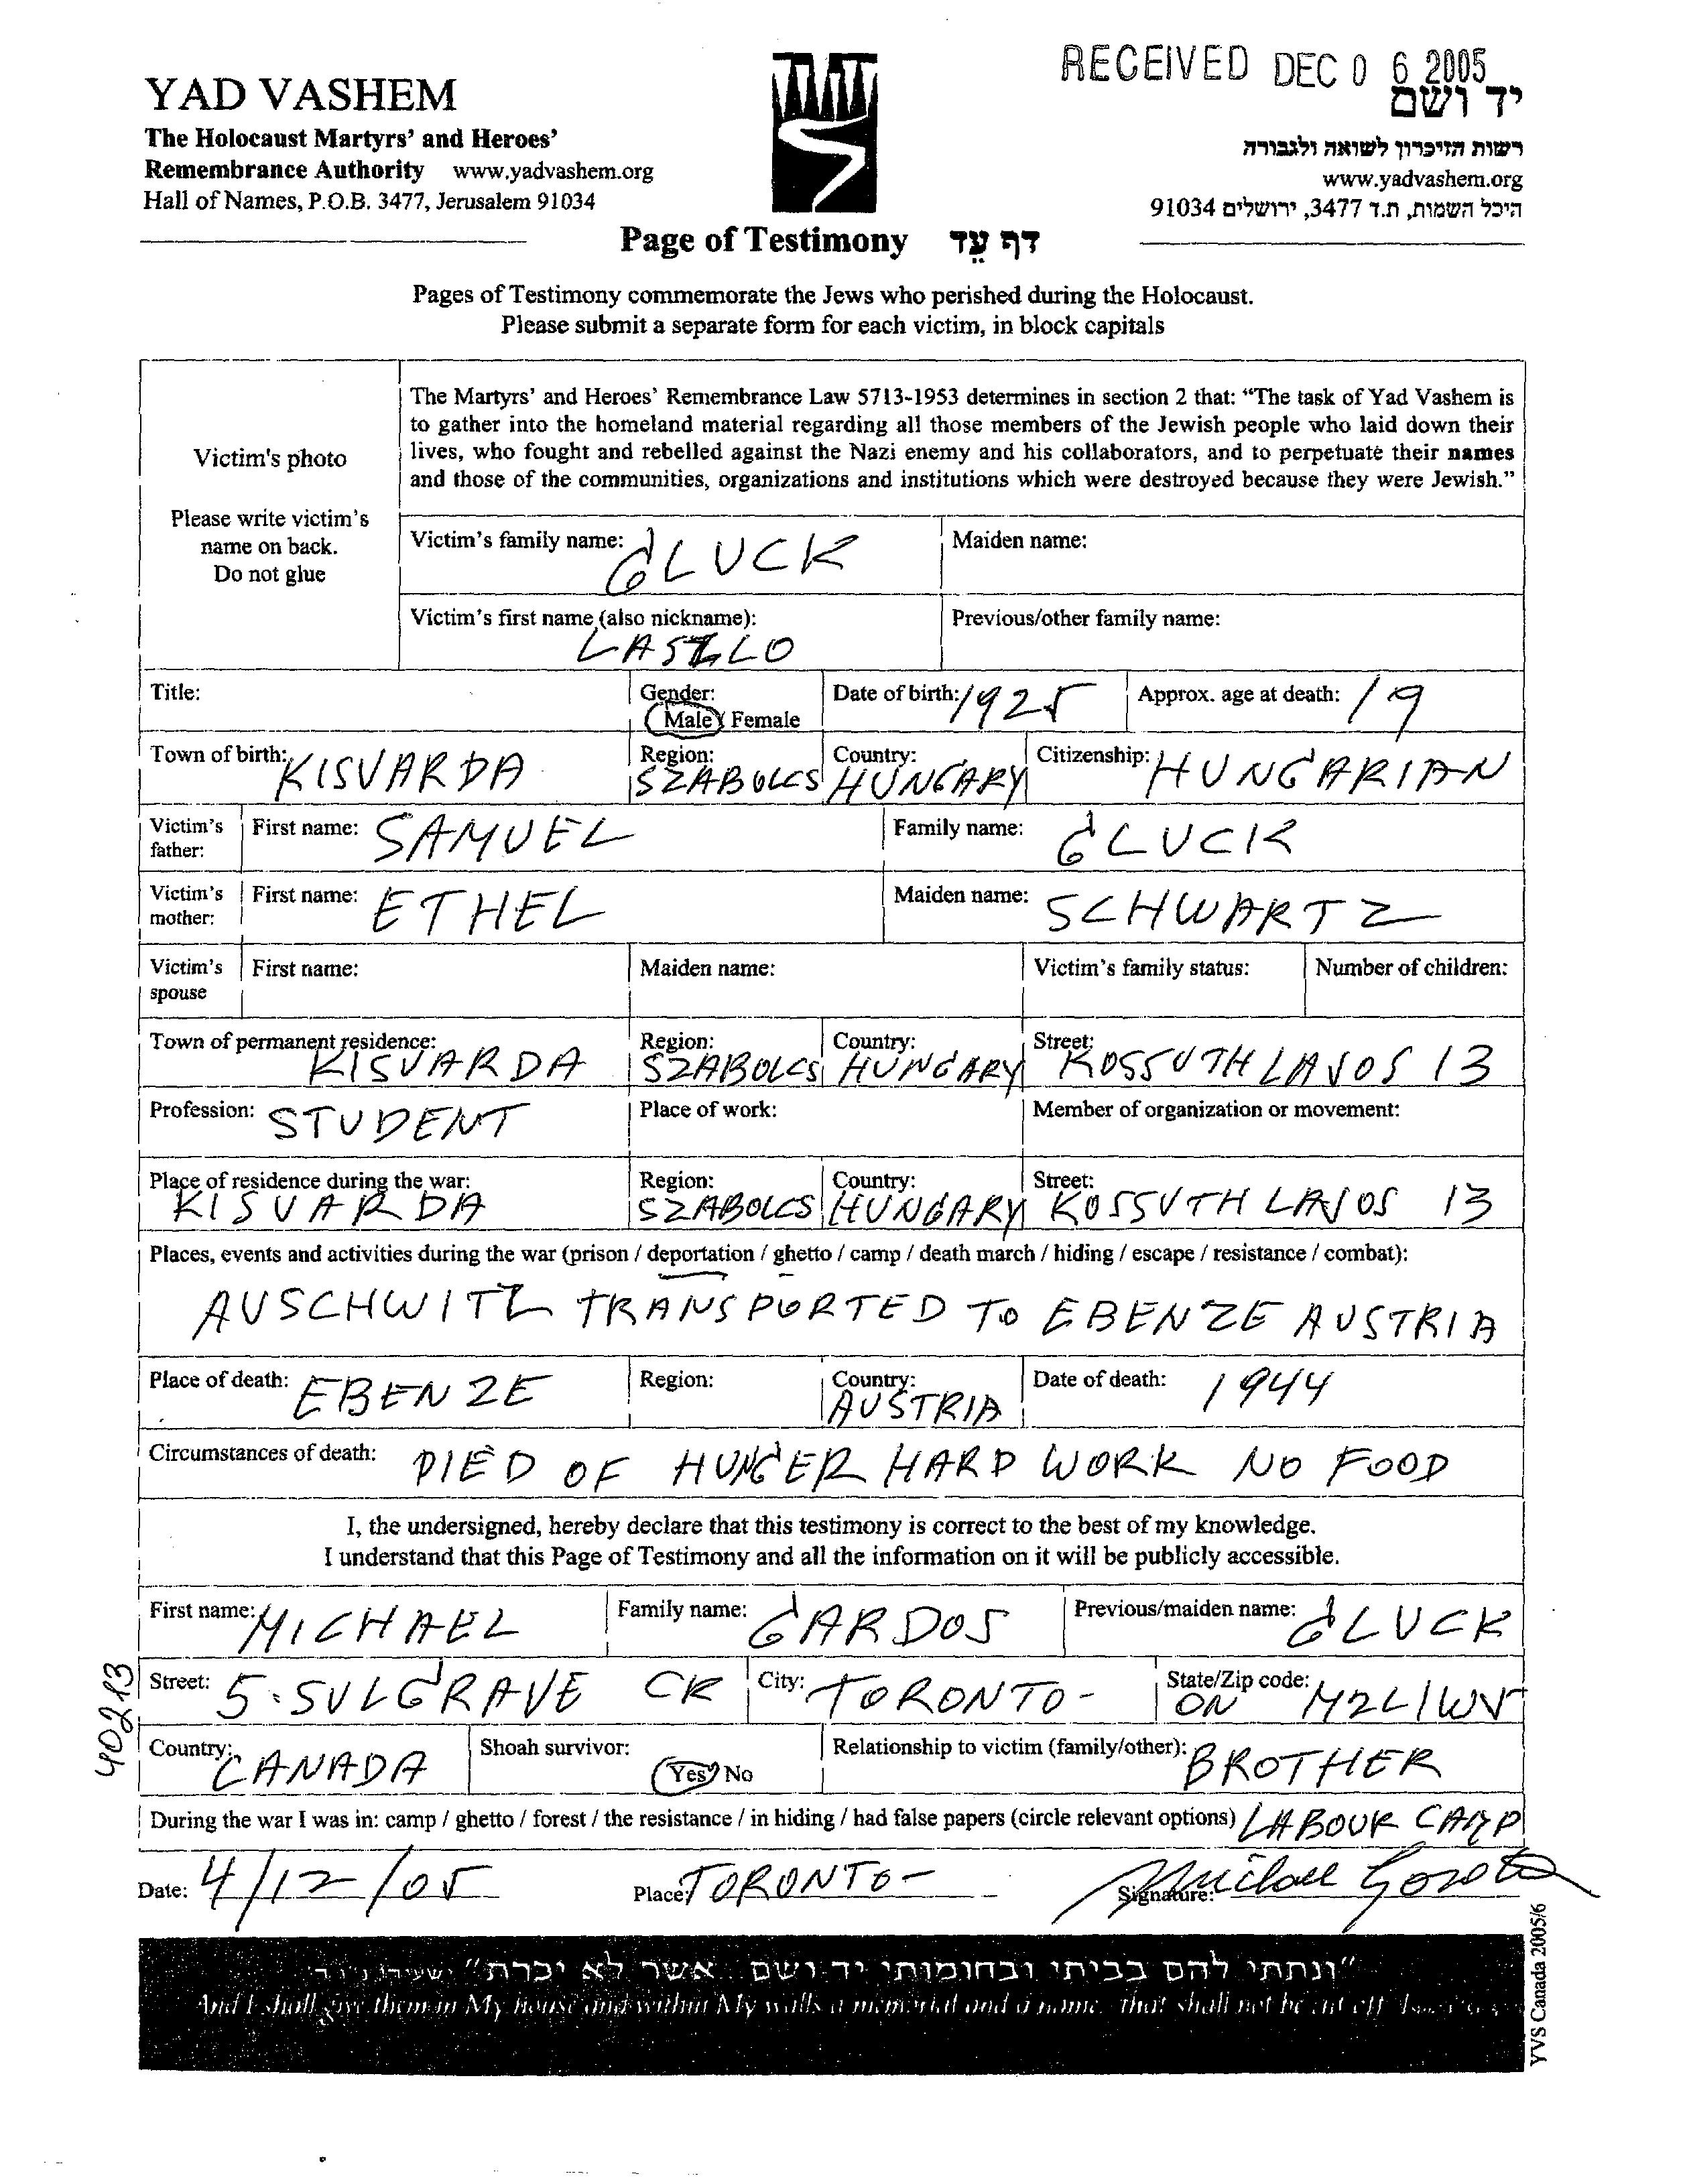 RECEIVED DEC 0 6 2005
YAD VASHEM
יד ושם
The Holocaust Martyrs' and Heroes'
Remembrance Authority www.yadvashem.org
Hall of Names, P.O.B. 3477, Jerusalem 91034
רשות הזיכרון לשואה ולגבורה
www.yadvashem.org
היכל השמות, ת.ד 3477, ירושלים 91034
Page of Testimony דף עֵד
Pages of Testimony commemorate the Jews who perished during the Holocaust.
Please submit a separate form for each victim, in block capitals
Victim's photo
Please write victim's
name on back.
Do not glue
The Martyrs' and Heroes' Remembrance Law 5713-1953 determines in section 2 that: "The task of Yad Vashem is
to gather into the homeland material regarding all those members of the Jewish people who laid down their
lives, who fought and rebelled against the Nazi enemy and his collaborators, and to perpetuate their names
and those of the communities, organizations and institutions which were destroyed because they were Jewish."
Victim's family name: GLUCK Maiden name:
Victim's first name (also nickname): LASZLO Previous/other family name:
Title: Gender: Male / Female Date of birth: 1925 Approx. age at death: 19
Town of birth: KISVARDA Region: SZABOLCS Country: HUNGARY Citizenship: HUNGARIAN
Victim's father: First name: SAMUEL Family name: GLUCK
Victim's mother: First name: ETHEL Maiden name: SCHWARTZ
Victim's spouse First name: Maiden name: Victim's family status: Number of children:
Town of permanent residence: KISVARDA Region: SZABOLCS Country: HUNGARY Street: KOSSUTH LAJOS 13
Profession: STUDENT Place of work: Member of organization or movement:
Place of residence during the war: KISVARDA Region: SZABOLCS Country: HUNGARY Street: KOSSUTH LAJOS 13
Places, events and activities during the war (prison / deportation / ghetto / camp / death march / hiding / escape / resistance / combat):
AUSCHWITZ TRANSPORTED TO EBENZE AUSTRIA
Place of death: EBENZE Region: Country: AUSTRIA Date of death: 1944
Circumstances of death: DIED OF HUNGER HARD WORK NO FOOD
I, the undersigned, hereby declare that this testimony is correct to the best of my knowledge.
I understand that this Page of Testimony and all the information on it will be publicly accessible.
First name: MICHAEL Family name: GARDOS Previous/maiden name: GLUCK
Street: 5 SULGRAVE CR City: TORONTO - State/Zip code: ON M2L1W5
40213
Country: CANADA Shoah survivor: Yes / No Relationship to victim (family/other): BROTHER
During the war I was in: camp / ghetto / forest / the resistance / in hiding / had false papers (circle relevant options) LABOUR CAMP
Date: 4/12/05 Place: TORONTO - Signature:
"ונתתי להם בביתי ובחומותי יד ושם... אשר לא יכרת"
And I shall give them in My house and within My walls a memorial and a name... that shall not be cut off.
YVS Canada 2005/6